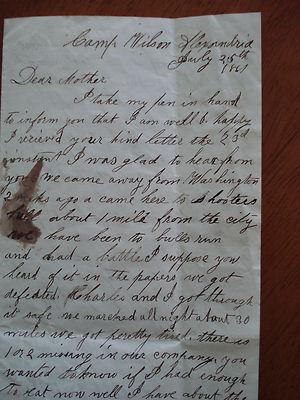 Camp Wilson Alexandria
July 25th
1861
Dear Mother
I take my pen in hand
to inform you that I am well & happy
I recieved your kind letter the 23d
instant I was glad to hear from
you we came away from Washington
2 weeks ago a came here to shooters
hill about 1 mile from the city
we have been to bulls run
and had a battle I suppose you
heard of it in the papers we got
defeated. Charles and I got through
it safe we marched all night about 30
miles we got peretty tired. there is
1 or 2 missing in our company. you
wanted to know if I had enough
to eat now well I have about the